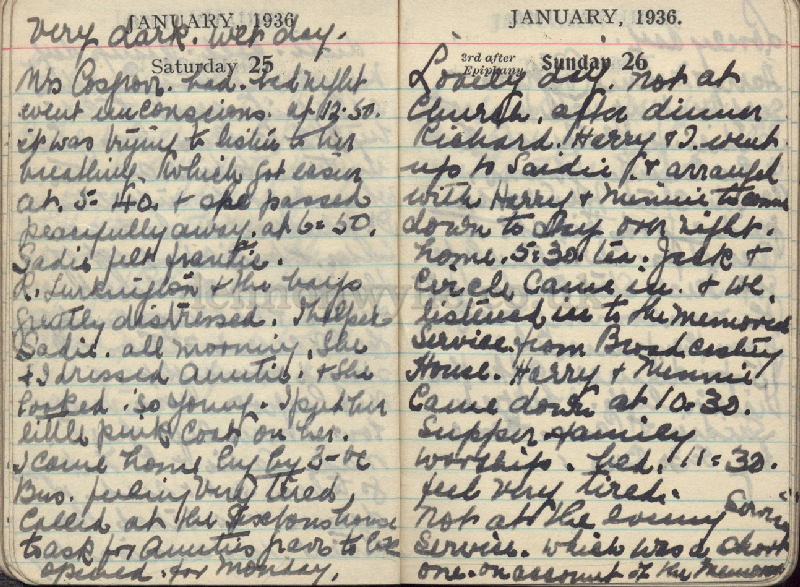 JANUARY, 1936
Very dark. wet day.
Saturday 25
Mrs Cosgrove. had. bad night
went unconscious. at 12-50.
it was trying to listen to her
breathing. Which got easier
at. 5=40. + she passed
peacefully away. at 6=50.
Sadie felt frantic.
R. Turkington + the boys
greatly distressed. I helped
Sadie. all morning. She
+ I dressed Auntie. + She
looked so young. I put her
little pink coat on her.
I came home by 3-oc
Bus. feeling very tired
Called at the Sextons house
to ask for Aunties grave to be
opened. for Monday.
JANUARY, 1936.
3rd after Epiphany Sunday 26
Lovely day. not at
Church. after dinner
Richard. Harry + I. went
up to Saidie + arranged
with Harry + Minnie to come
down to stay over night.
home. 5=30. tea. Jack +
Circle Came in. + we
listened in to the Memorial
Service. from Broadcasting
House. Harry + Minnie
Came down at 10=30.
Supper. + family
worship. bed. 11=30.
feel very tired.
not at the evening Service
Service. which was a short
one. on account of the Memorial